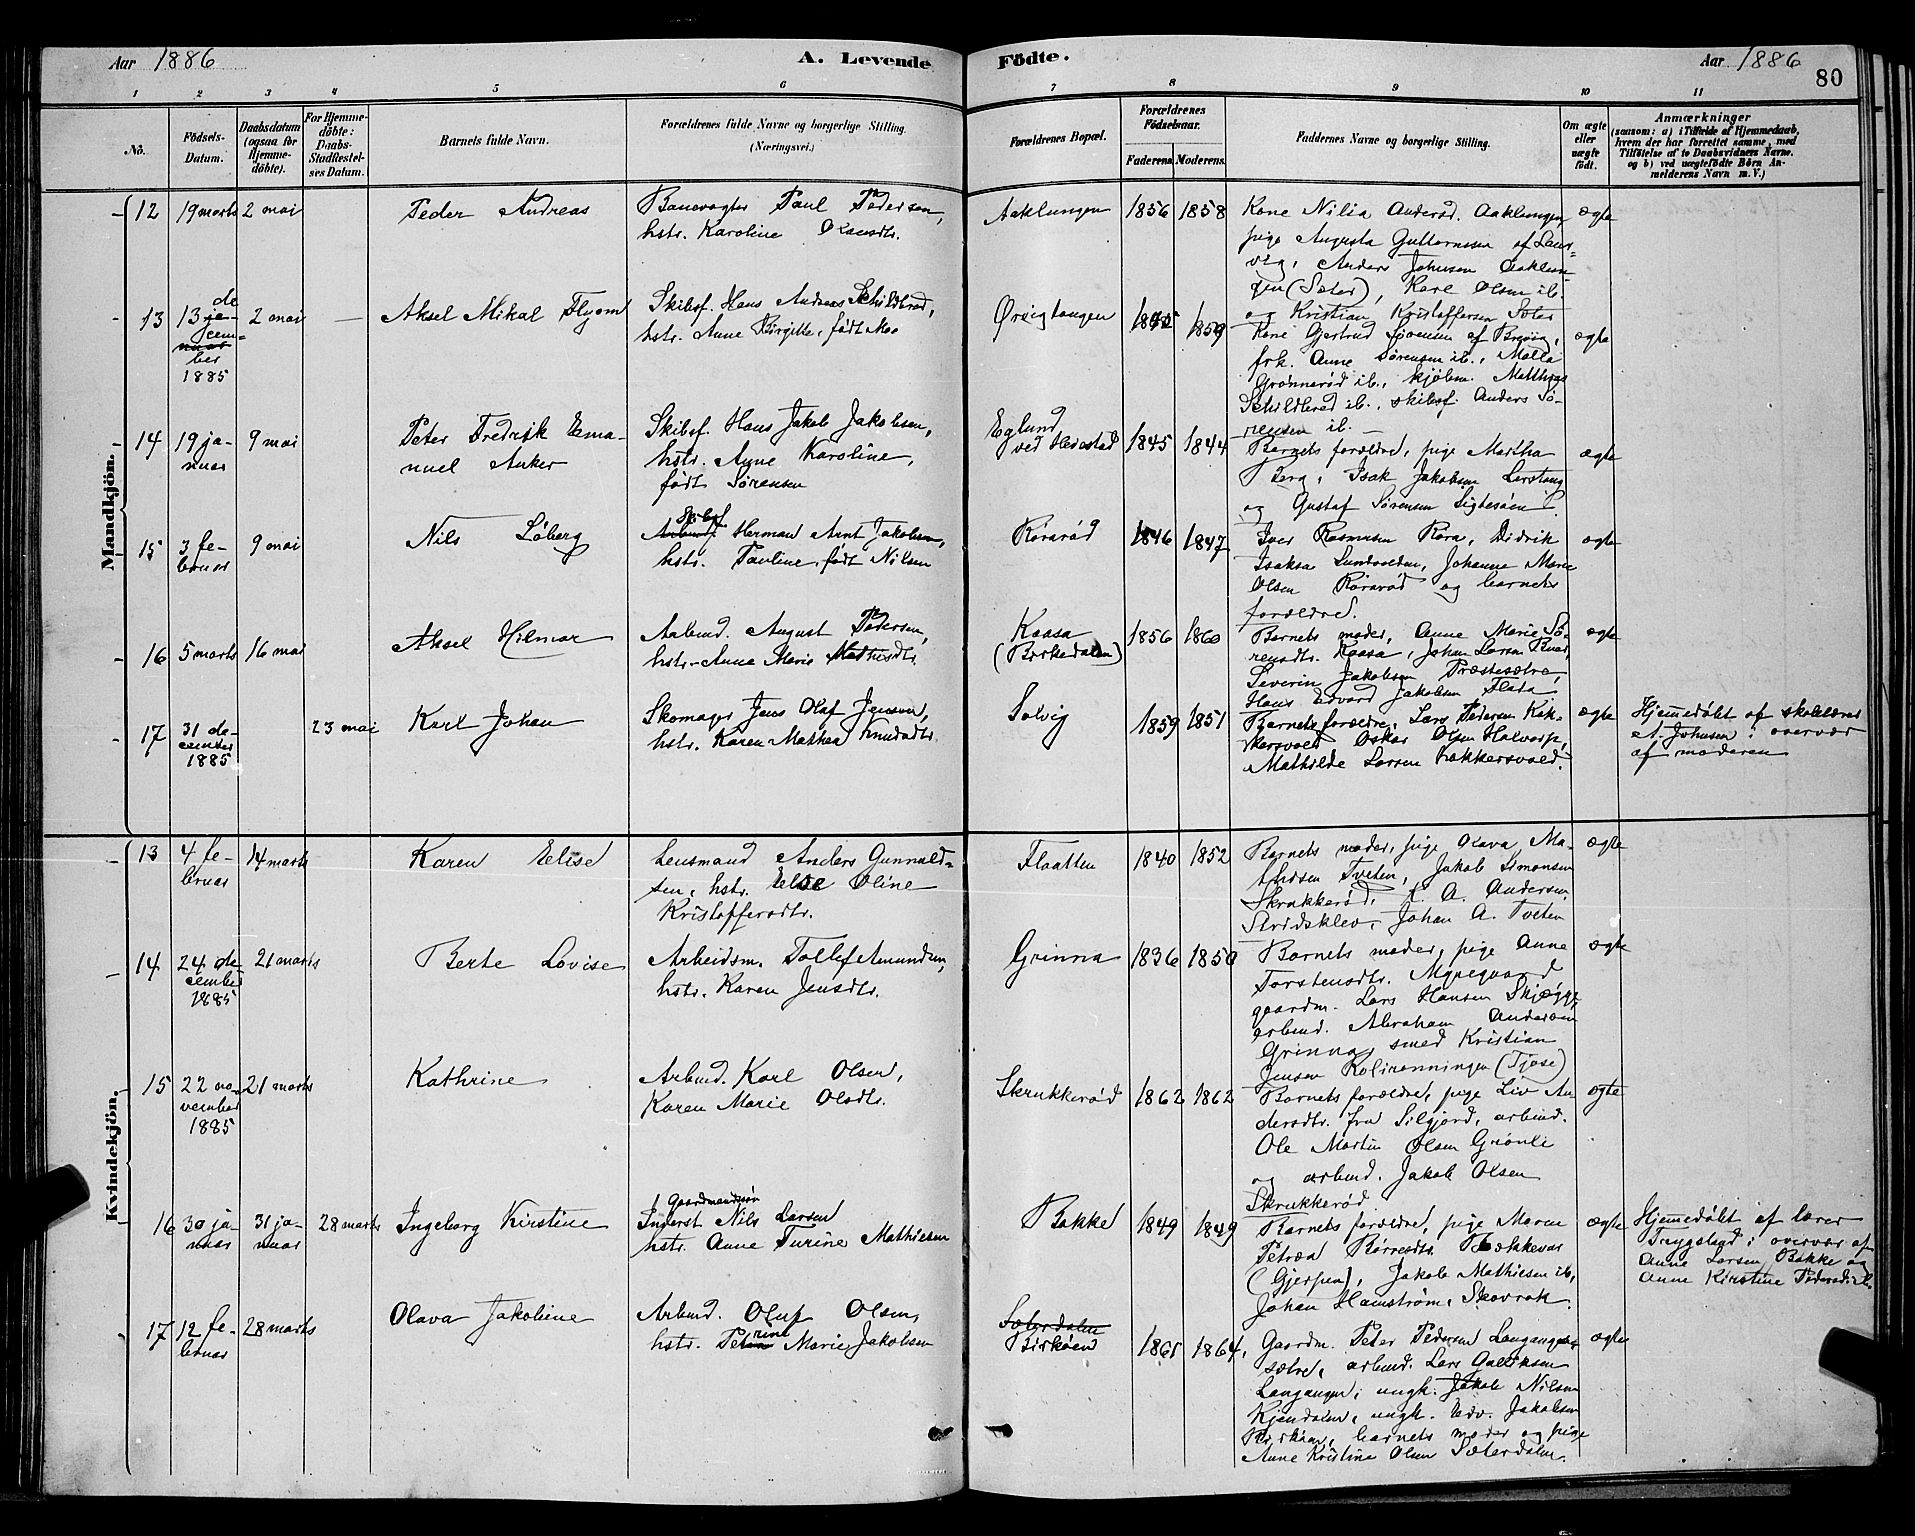 Aar 1886
A. Levende
Födte.
Aar 1886
80
1 2 3 4 5 6 7 8 9 10 11
No.
Födsels-
Datum.
Daabsdatum
(ogsaa for
Hjemme-
döbte).
For Hjemme-
döbte:
Daabs-
Stadfæstel-
ses Datum.
Barnets fulde Navn.
Forældrenes fulde Navne og borgerlige Stilling.
(Næringsvei.)
Forældrenes Bopæl.
Forældrenes
Födselsaar.
Faderens. Moderens.
Faddernes Navne og borgerlige Stilling.
Om ægte
eller
uægte
födt.
Anmærkninger
(saasom: a) i Tilfælde af Hjemmedaab,
hvem der har forrettet samme, med
Tilföielse af to Daabsvidners Navne.
og b) ved uægtefödte Börn An-
melderens Navn m. V.)
Mandkjön.
12 19 marts 2 mai
Peder Andreas
Banevogter Paul Pedersen,
hstr. Karoline Olausdtr.
Aaklungen 1856 1858
Kone Nilia Anderød. Aaklungen,
pige Augusta Guttormsen af Laur-
vig, Anders Johnsen Aaklun-
gen (Sæter), Karl Olsen ib.
og Kristian Kristoffersen Sæter
ægte
13 13 de-
cem-
ber
1885
2 mai
Aksel Mikal Flyom
Skibsf. Hans Andreas Schildbred,
hstr. Anne Birgitte, født Moe
Ørvigtangen 1859
Kone Gjertrud Sørensen af Brevig,
frk. Anne Sørensen ib., Malla
Grønnerød ib., skjølm. Mathias
Schildbred ib., skibsf. Anders Sø-
rensen ib.
ægte
14 19 ja-
nuar
9 mai
Peter Fredrik Ema-
nuel Anker
Skibsf. Hans Jakob Jakobsen,
hstr. Anne Karoline,
født Sørensen
Eglund
ved Heistad
1845 1844
Barnets forældre, pige Martha
Berg, Isak Jakobsen Lerstang
og Gustaf Sørensen Sigtesøen
ægte
15 3 fe-
bruar
9 mai
Nils Løberg
Skibsf.
Arbmd. Herman Arnt Jakobsen,
hstr. Pauline, født Nilsen
Rørarød 1846 1847
Iver Rasmusen Røra, Didrik
Isaksen Lundvolden, Johanne Marie
Olsen Rørarød og barnets
forældre.
ægte
16 5 marts 16 mai
Aksel Hilmar
Aabmd. August Pedersen,
hstr. Anne Marie Mathisdtr.
Kaasa
(Birkedalen)
1856 1860
Barnets moder, Anne Marie Sø-
rensdtr. Kaasa, Johan Larsen
Severin Jakobsen Præstesætre,
Hans Edvard Jakobsen Flata
ægte
17 31 de-
cember
1885
23 mai
Karl Johan
Skomager Jens Olaf Jensen,
hstr. Karen Mathea Knudsdtr.
Solvig 1859 1851
Barnets forældre, Lars Pedersen Kok-
kersvold Oskar Olsen Halvarp,
Mathilde Larsen Kokkersvold.
ægte
Hjemmedøbt af skolelærer
A. Johnsen i overvær
af moderen
Kvindekjön.
13 4 fe-
bruar
14 marts
Karen Elise
Lensmand Anders Gunnuld-
sen, hstr. Else Oline
Kristoffersdtr.
Flaatten 1840 1852
Barnets moder, pige Olava Ma-
thisen Tveten, Jakob Simonsen
Skrukkerød, K. A. Andersen
Stridsklev, Johan A. Tveten
ægte
14 24 de-
cember
1885
21 marts
Berte Lovise
Arbeidsm. Tollef Amundsen,
hstr. Karen Jensdtr.
Grinna 1836 1850
Barnets moder, pige Anne
Torstensdtr. Myregaard
gaardm. Lars Hansen Skjægge,
arbmd. Abraham Andersen
Grinna, smed Kristian
Jensen Kolirønningen (Tjøse)
ægte
15 22 no-
vember
1885
21 marts
Kathrine
Arbmd. Karl Olsen,
Karen Marie Olsdtr.
Skrukkerød 1862 1862
Barnets forældre, pige Liv An-
dersdtr. fra Siljord, arbmd.
Ole Martin Olsen Grønli
og arbmd. Jakob Olsen
Skrukkerød
ægte
16 30 ja-
nuar
31 ja-
nuar
28 marts
Ingeborg Kirstine
Gaardmandssøn
Inderst Nils Larsen
hstr. Anne Turine Mathisen
Bakke 1849 1849
Barnets forældre, pige Maren
Petrea Børresdtr. Bækkevar
(Gjerpen), Jakob Mathiesen ib,
Johan Hamstrøm, Skavrak
ægte
Hjemmedøbt af lærer
Trygstad i overvær af
Anne Larsen Bakke og
Anne Kirstine Pedersdtr. ib.
17 12 fe-
bruar
28 marts
Olava Jakobine
Arbmd. Oluf Olsen,
hstr. Petrine Marie Jakobsen
Sæterdalen
Birkøen
1861 1864
Gaardm. Peter Pedersen Langangen-
sætre, arbmd. Lars Gulliksen
Langangen, ungk. Jakob Nilsen
Kjendalen, ungk. Edv. Jakobsen
Birkøen, barnets moder og pige
Anne Kristine Olsen Sæterdalen.
ægte